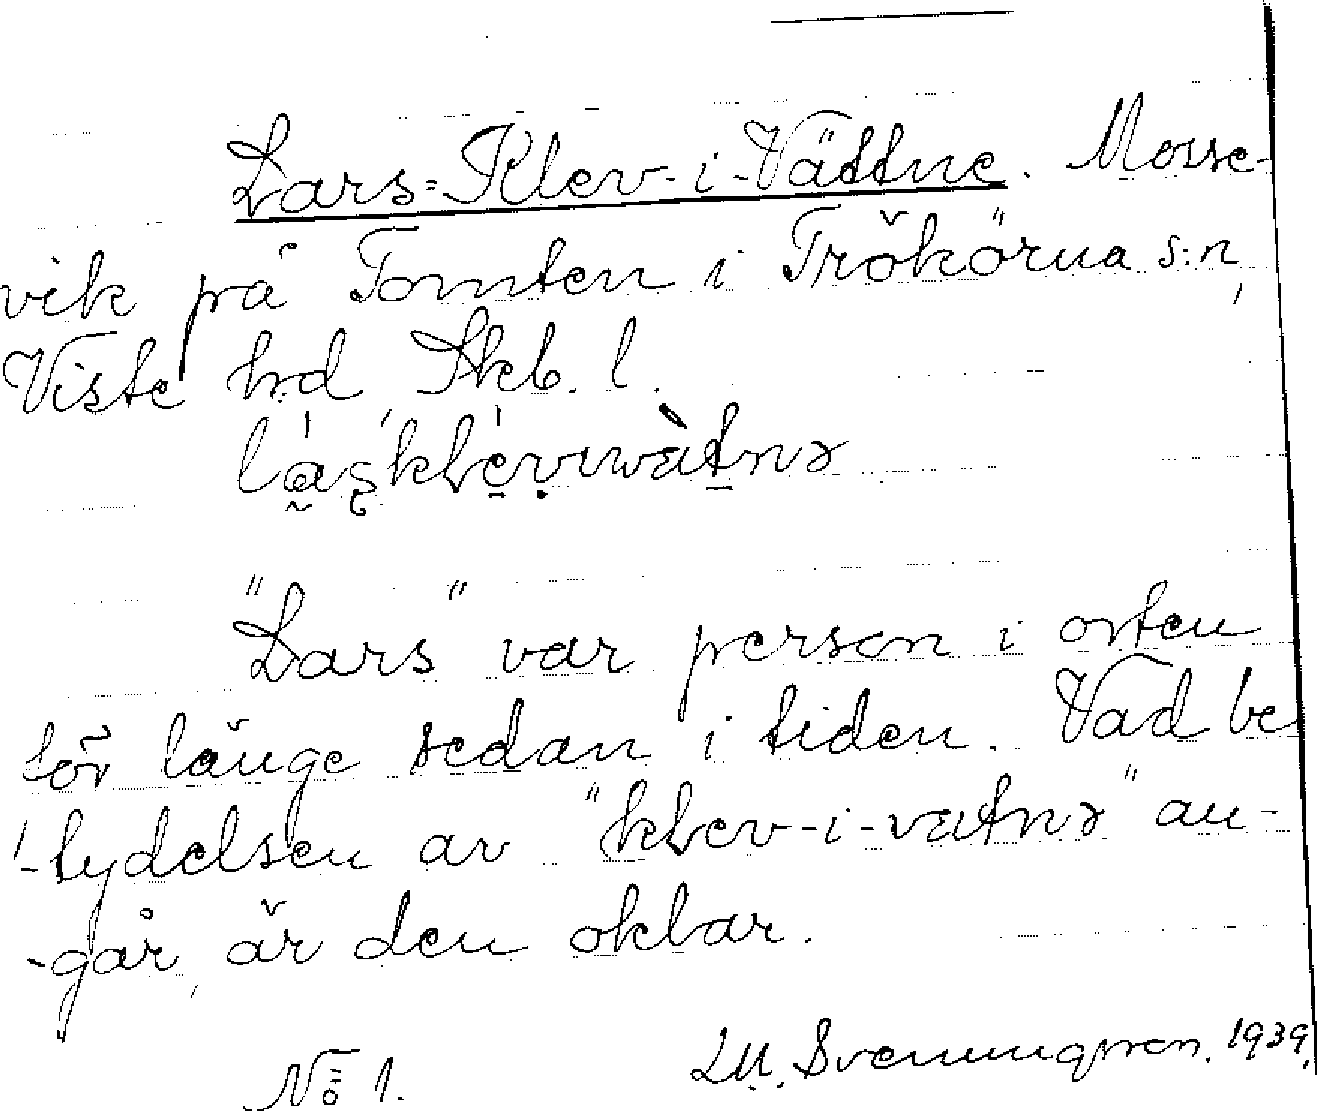 Lars-Klev-i-Vättne. Mosse-
vik på Tomten i Trökörna s:n,
Viste hd, Skb. l.
"Lars" var person i orten
för länge sedan i tiden. Vad be
-tydelsen av "klev-i-vatnə" an-
-går, är den oklar.
No 1.
1939.